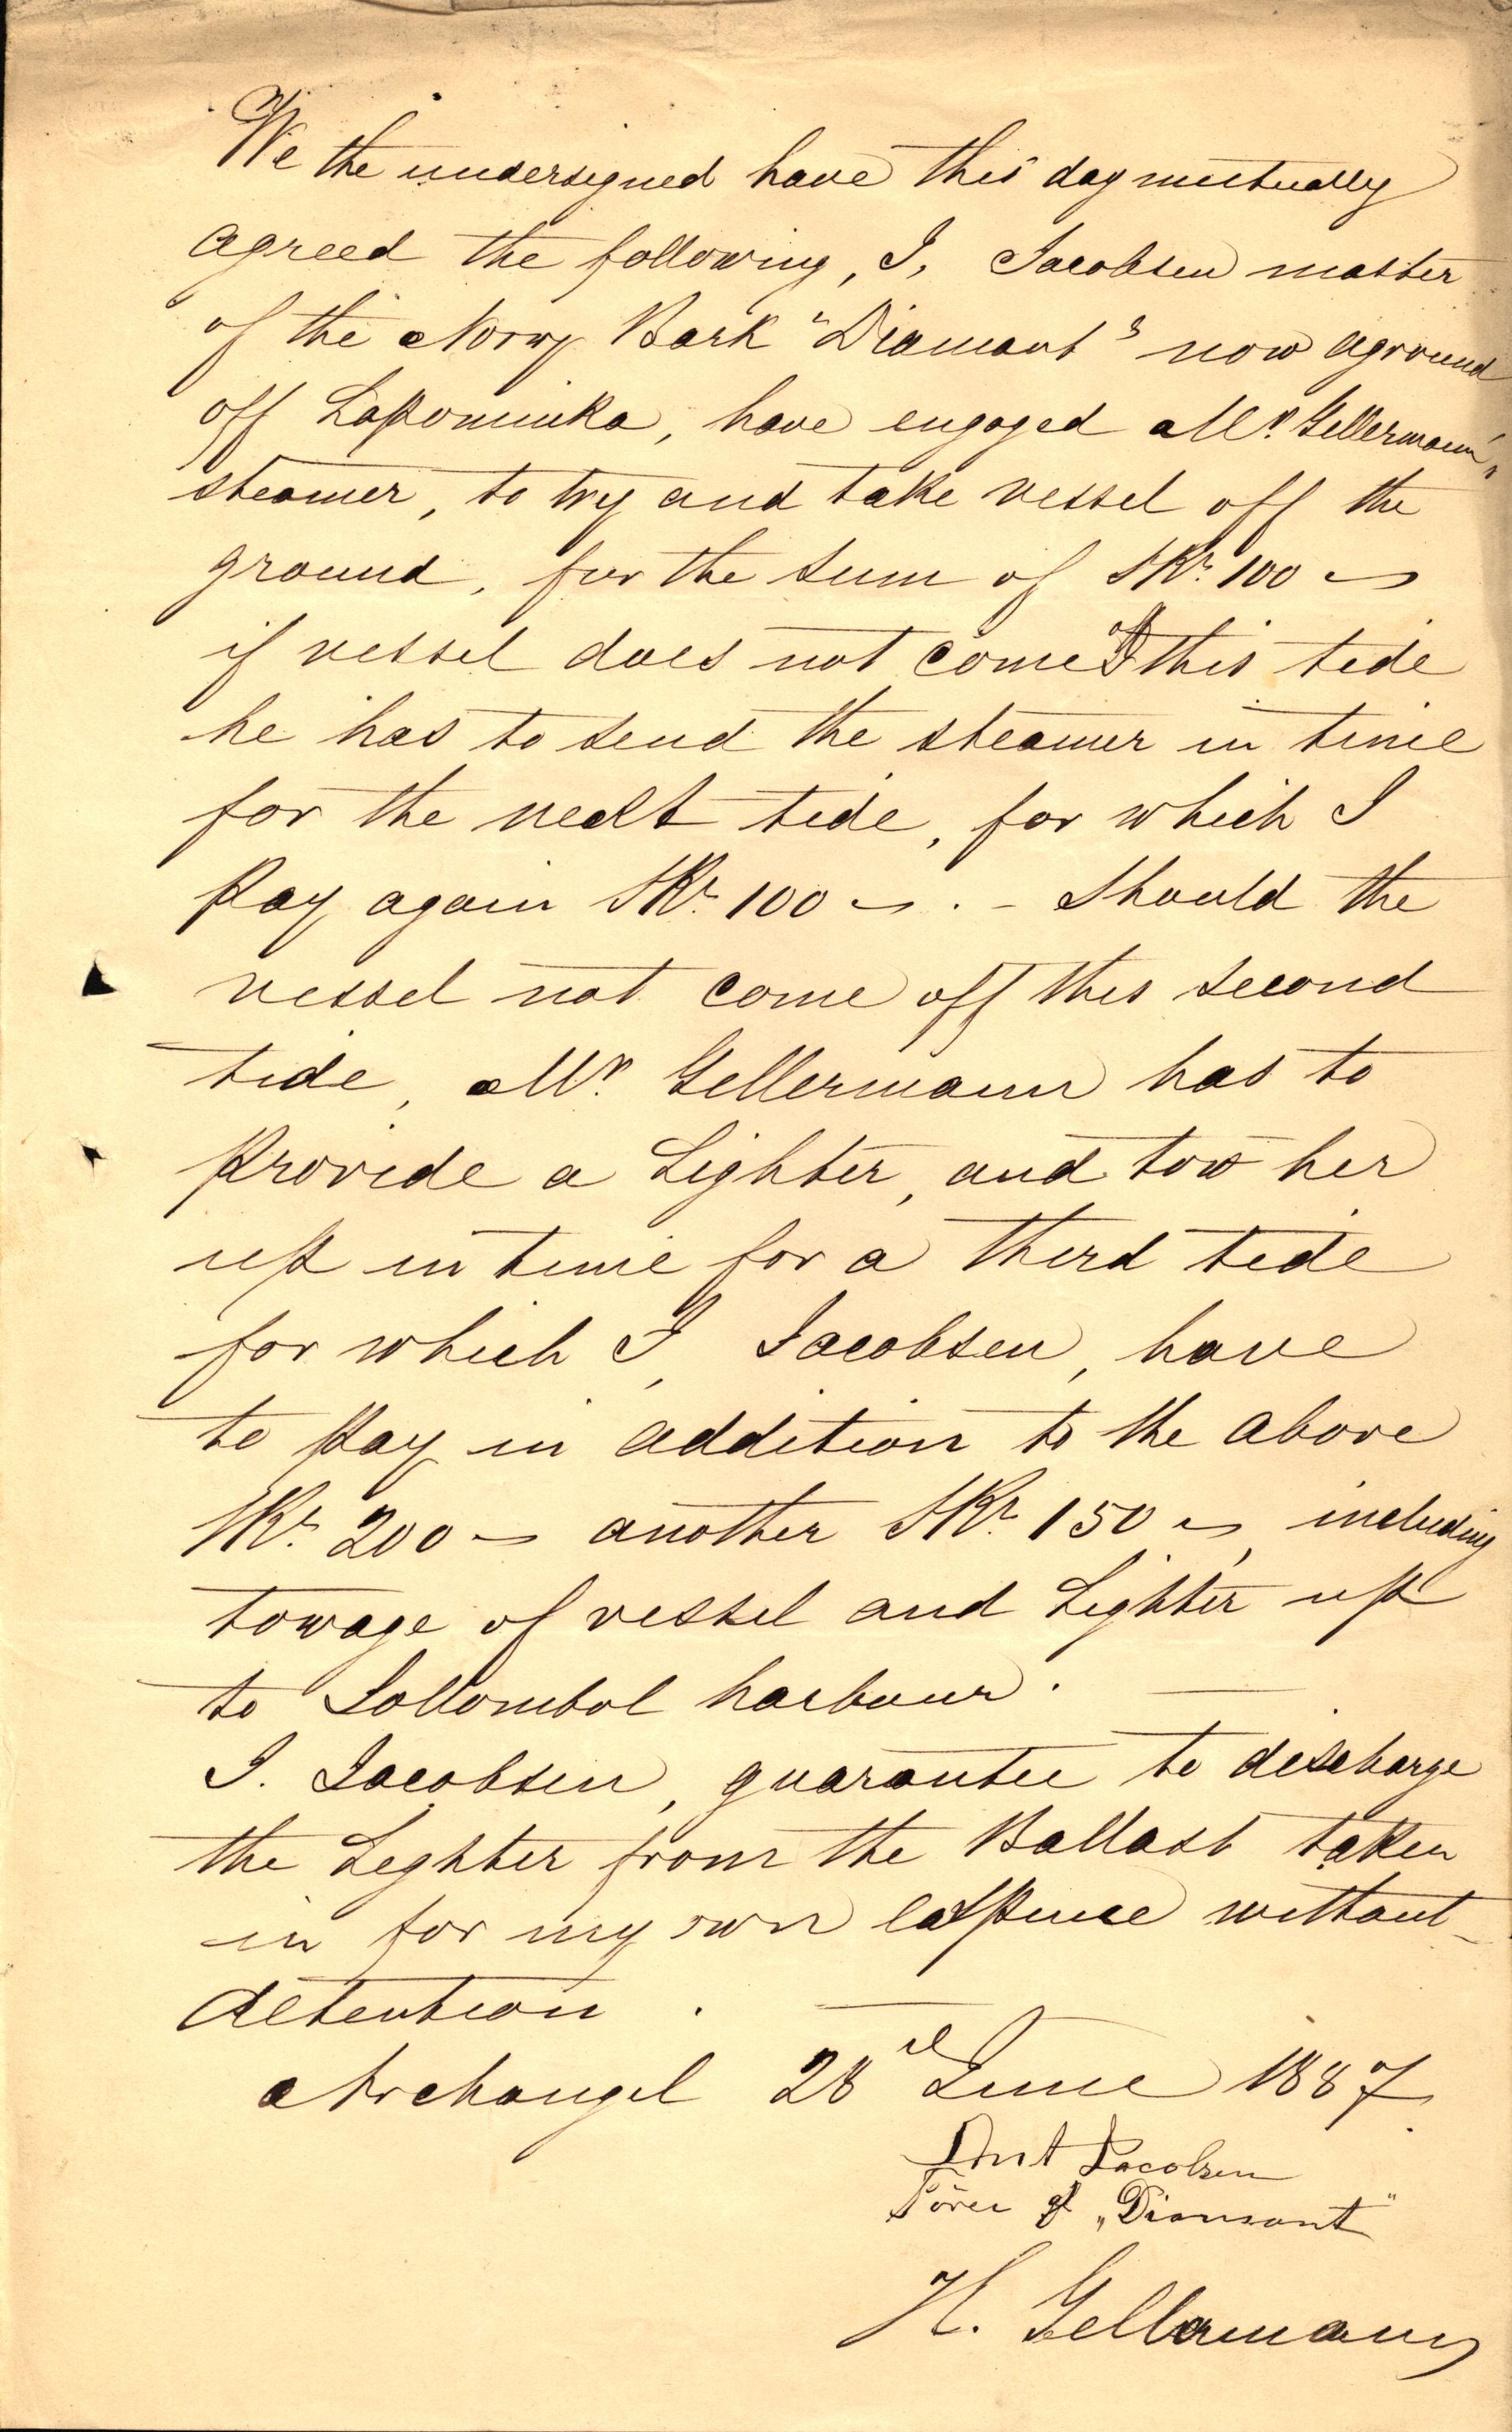 We the undersigned have this day mutually
agreed the following, I, Jacobsen master
of the Norwg Bark "Diamant" now aground
off Lapominka, have engaged Mr. Gellermann's
steamer, to try and take vessel off the
ground, for the sum of SRr. 100 –
if vessel does not come off this tide
he has to send the steamer in time
for the next tide, for which I
pay again SRr. 100 – . – Should the
vessel not come off this second
tide, Mr. Gellermann has to
provide a Lighter, and tow her
up in time for a third tide
for which I, Jacobsen, have
to pay in addition to the above
SRr. 200 – another SRr. 150 –, including
towage of vessel and Lighter up
to Sollombol harbour. —
I. Jacobsen, guarantee to discharge
the Lighter from the Ballast taken
in for my own expence without
detention . —
Archangel 28 June 1887.
Ant Jacobsen
Förer af „Diamant"
H. Gellermann